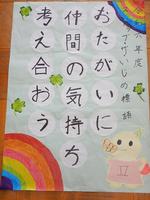 六年度
いじめの標語
おたがいに
仲間の気持ち
考え合おう